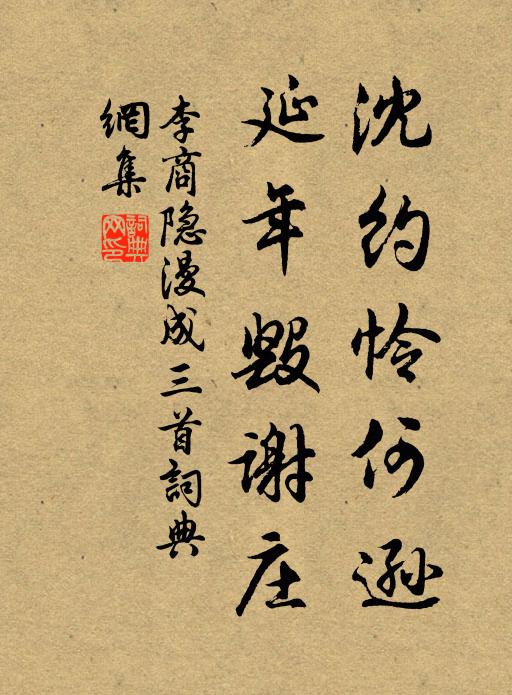 沈约怜何逊
延年毁谢庄
李商隐漫成三首詞典
網集
詞典
网印